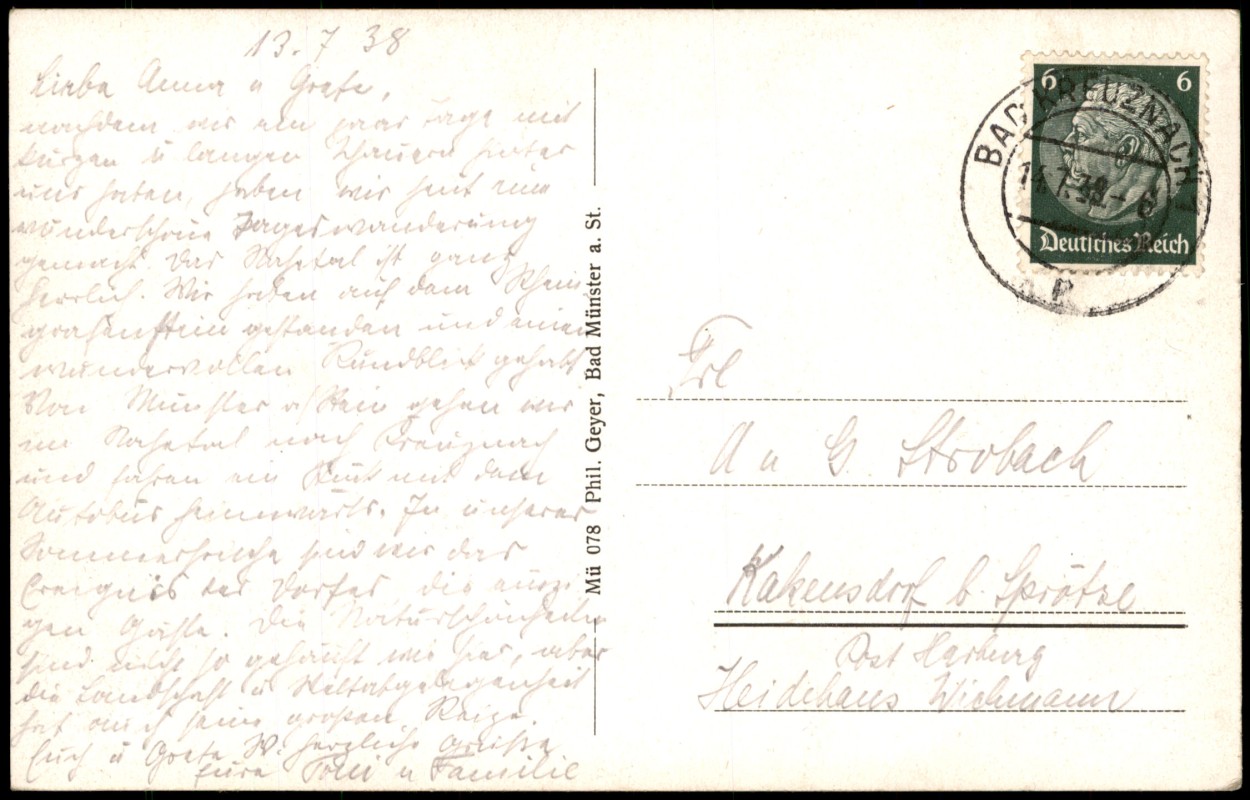 13. 7 38
Liebe Anna u Grete,
nachdem wir ein paar Tage mit
kurzen u langen Schauern hinter
uns hatten, haben wir heut eine
wunderschöne Tageswanderung
gemacht. Das Nahetal ist ganz
herrlich. Wir haben auf dem Rhein
grafenstein gestanden und einen
wundervollen Rundblick gehabt
Von Münster a/Stein gehen wir
im Nahetal nach Kreuznach
und fahren ein Stück mit dem
Autobus heimwärts. In unserer
Sommerfrische sind wir das
Ereignis des Dorfes, die einzi
gen Gäste. Die Naturschönheiten
sind nicht so gehäuft wie hier, aber
die Landschaft u Weltabgelegenheit
hat auch seine großen Reize.
Euch u Grete W. herzliche Grüße
Eure Toni u Familie
Mü 078 Phil. Geyer, Bad Münster a. St.
6 6
Deutsches Reich
BAD KREUZNACH
14.7.38 - 6
Frl
A u G. Strobach
Kakensdorf b. Sprötze
Post Harburg
Heidehaus Wichmann